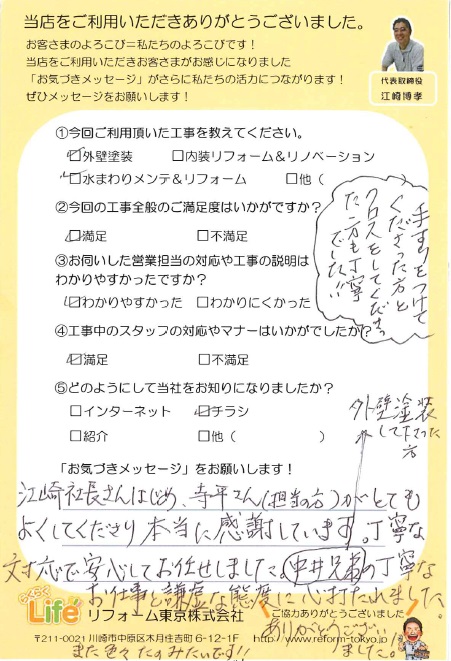 当店をご利用いただきありがとうございました。
お客さまのよろこび＝私たちのよろこびです！
当店をご利用いただきお客さまがお感じになりました
「お気づきメッセージ」がさらに私たちの活力につながります！
ぜひメッセージをお願いします！
代表取締役
江崎博孝
①今回ご利用頂いた工事を教えてください。
☑外壁塗装 □内装リフォーム＆リノベーション
☑水まわりメンテ＆リフォーム □他（
②今回の工事全般のご満足度はいかがですか？
☑満足 □不満足
③お伺いした営業担当の対応や工事の説明は
わかりやすかったですか？
☑わかりやすかった □わかりにくかった
④工事中のスタッフの対応やマナーはいかがでしたか？
☑満足 □不満足
⑤どのようにして当社をお知りになりましたか？
□インターネット ☑チラシ
□紹介 □他（ ）
手すりをつけて
くださった方と
クロスをしてくださっ
た方も丁寧
でした!!
外壁塗装
して下さった
方
「お気づきメッセージ」をお願いします！
江崎社長さんはじめ、寺平さん(担当の方)がとても
よくしてくださり本当に感謝しています。丁寧な
対応で安心してお任せしました。中井兄弟の丁寧な
お仕事と謙虚な態度に心打たれました。
らくらく Life
リフォーム東京株式会社
ご協力ありがとうございました
〒211-0021 川崎市中原区木月住吉町6-12-1F http://www.reform-tokyo.jp/
ありがとうござい
ました。
また色々たのみたいです!!